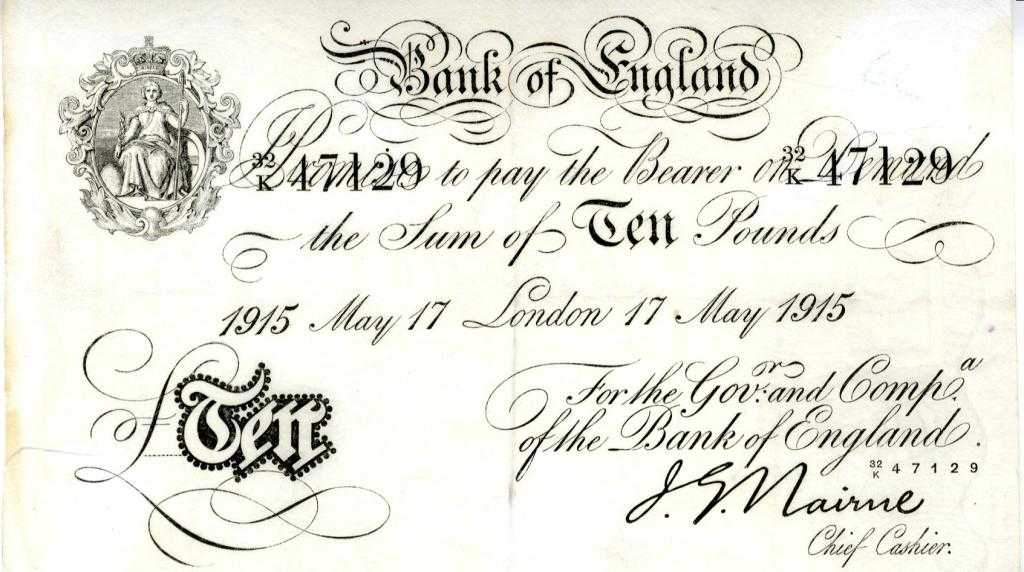 Bank of England
32/K 47129 32/K 47129
I Promise to pay the Bearer on Demand
the Sum of Ten Pounds
1915 May 17 London 17 May 1915
For the Govr. and Compa.
of the Bank of England.
£Ten
32/K 47129
J.G. Nairne
Chief Cashier.